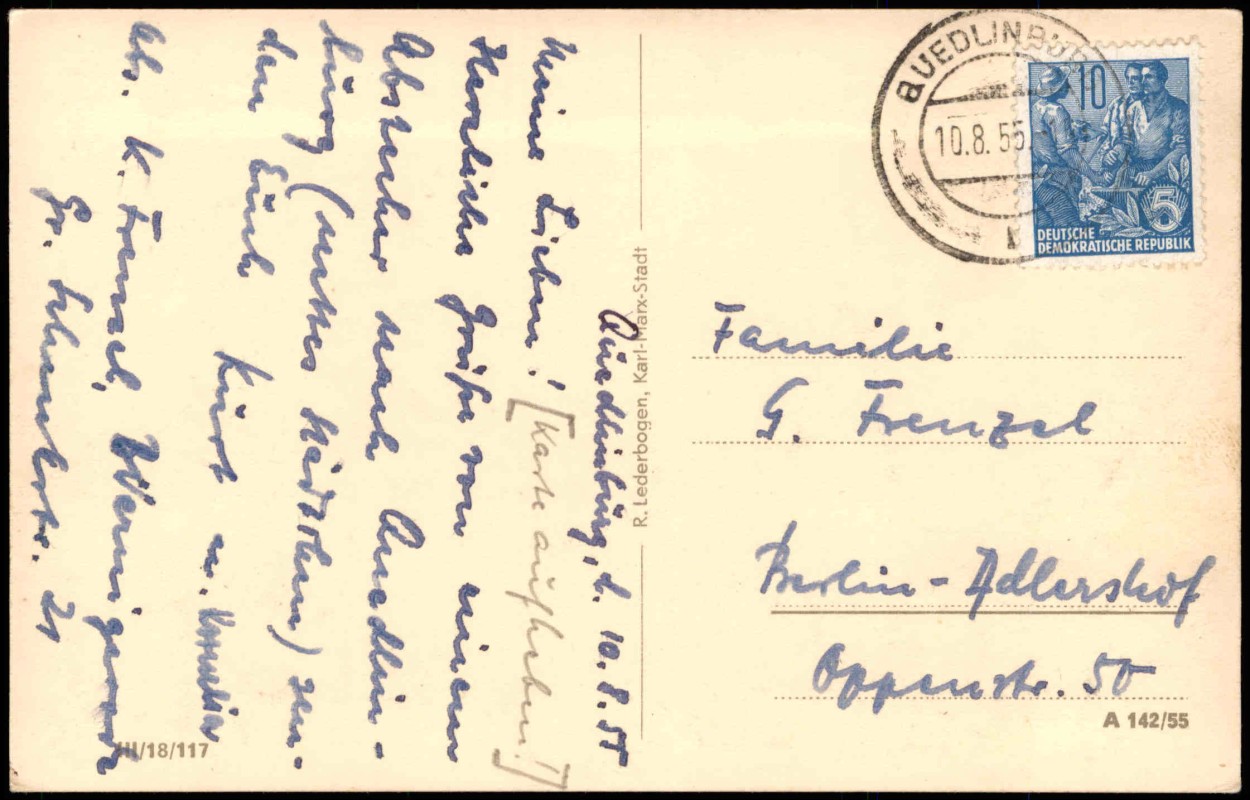 Quedlinburg, d. 10.8.55
Meine Lieben! [Karte aufheben!]
Herzliche Grüße von einem
Abstecher nach Quedlin-
burg (nettes Städtchen) sen-
den Euch
Kurt u.
Ab. K. Frenzel, Wernigerode
Gr. Schenkstr. 21
R. Lederbogen, Karl-Marx-Stadt
III/18/117
QUEDLINBURG
10.8.55
10
5
DEUTSCHE
DEMOKRATISCHE REPUBLIK
Familie
G. Frenzel
Berlin-Adlershof
Oppenstr. 50
A 142/55